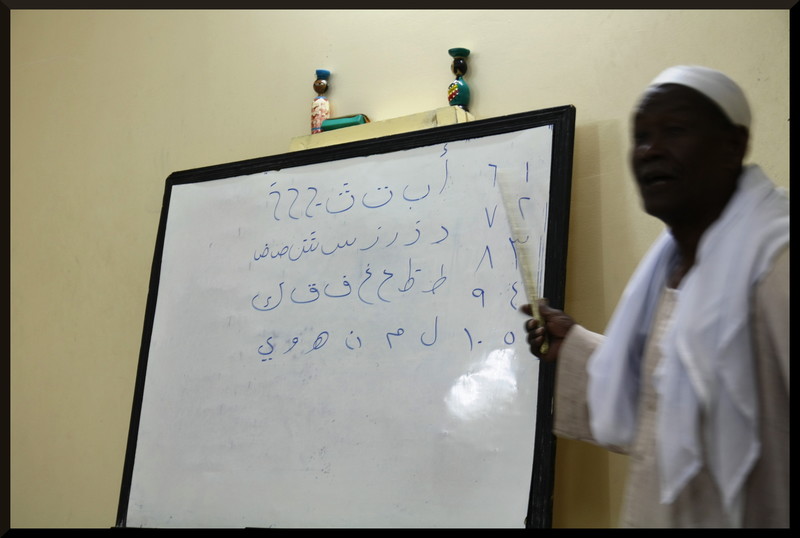 ١ ٦ أ ب ت ث ج ح خ
٢ ٧ د ذ ر ز س ش ص ض
٣ ٨ ط ظ ع غ ف ق ك
٤ ٩
٥ ١٠ ل م ن ه و ي